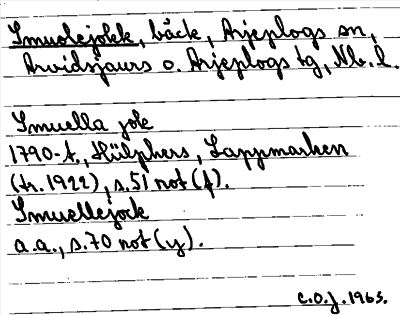 Smuolejokk, bäck, Arjeplogs sn,
Arvidsjaurs o. Arjeplogs tg, Nb. l.
Smuella jok
1790-t., Hülphers, Lappmarken
(tr. 1922), s. 51 not (f).
Smuellejock
a.a., s. 70 not (y).
C.O.J. 1963.